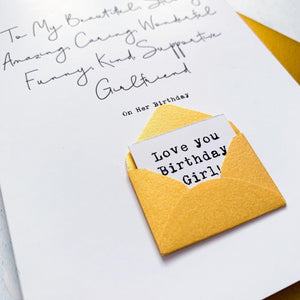 To My Beautiful,
Amazing, Caring, Wonderful
Funny, Kind, Supportive
Girlfriend
On Her Birthday
Love you
Birthday
Girl!